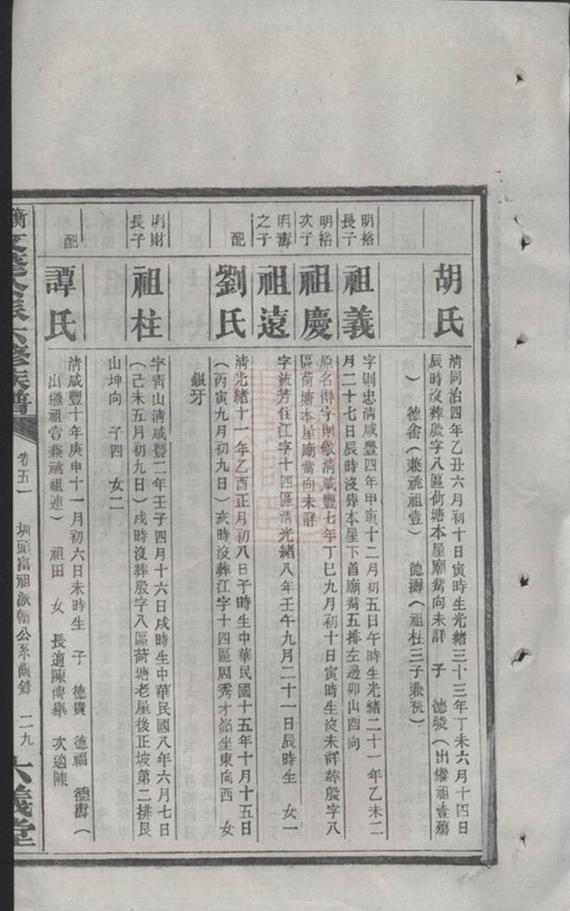 胡氏
清同治四年乙丑六月初十日寅時生光緒三十三年丁未六月十四日
辰時沒葬殷字八區荷塘本屋廟嵜向未詳 子 德駿（出繼祖壹
）德畲（兼祧祖壹） 德壽（祖柱三子兼祧）
明裕
長子
祖義
字則忠清咸豐四年甲寅十二月初五日午時生光緒二十一年乙未二
月二十七日辰時沒葬本屋下首廟嵜五排左邊卯山酉向
明裕
次子
祖慶
原名得字則敬清咸豐七年丁巳九月初十日寅時生沒未詳葬殷字八
區荷塘本屋廟嵜向未詳
明壽
之子
祖遠
字流芳住江字十四區清光緒八年壬午九月二十一日辰時生 女一
配
劉氏
清光緒十一年乙酉正月初八日子時生中華民國十五年十月十五日
（丙寅九月初九日）亥時沒葬江字十四區周秀才嵛坐東向西 女
銀牙
明財
長子
祖柱
字青山清咸豐二年壬子四月十六日戌時生中華民國八年六月七日
（己未五月初九日）戌時沒葬殷字八區荷塘老屋後正坡第二排艮
山坤向 子四 女二
配
譚氏
清咸豐十年庚申十一月初六日未時生 子 德貴 德福 德壽（
出繼祖壹兼祧祖連） 祖田 女 長適陳傳舉 次適陳
衡 六修族譜 卷五一 圳頭富祖派翰公系齒錄 二九 六義堂